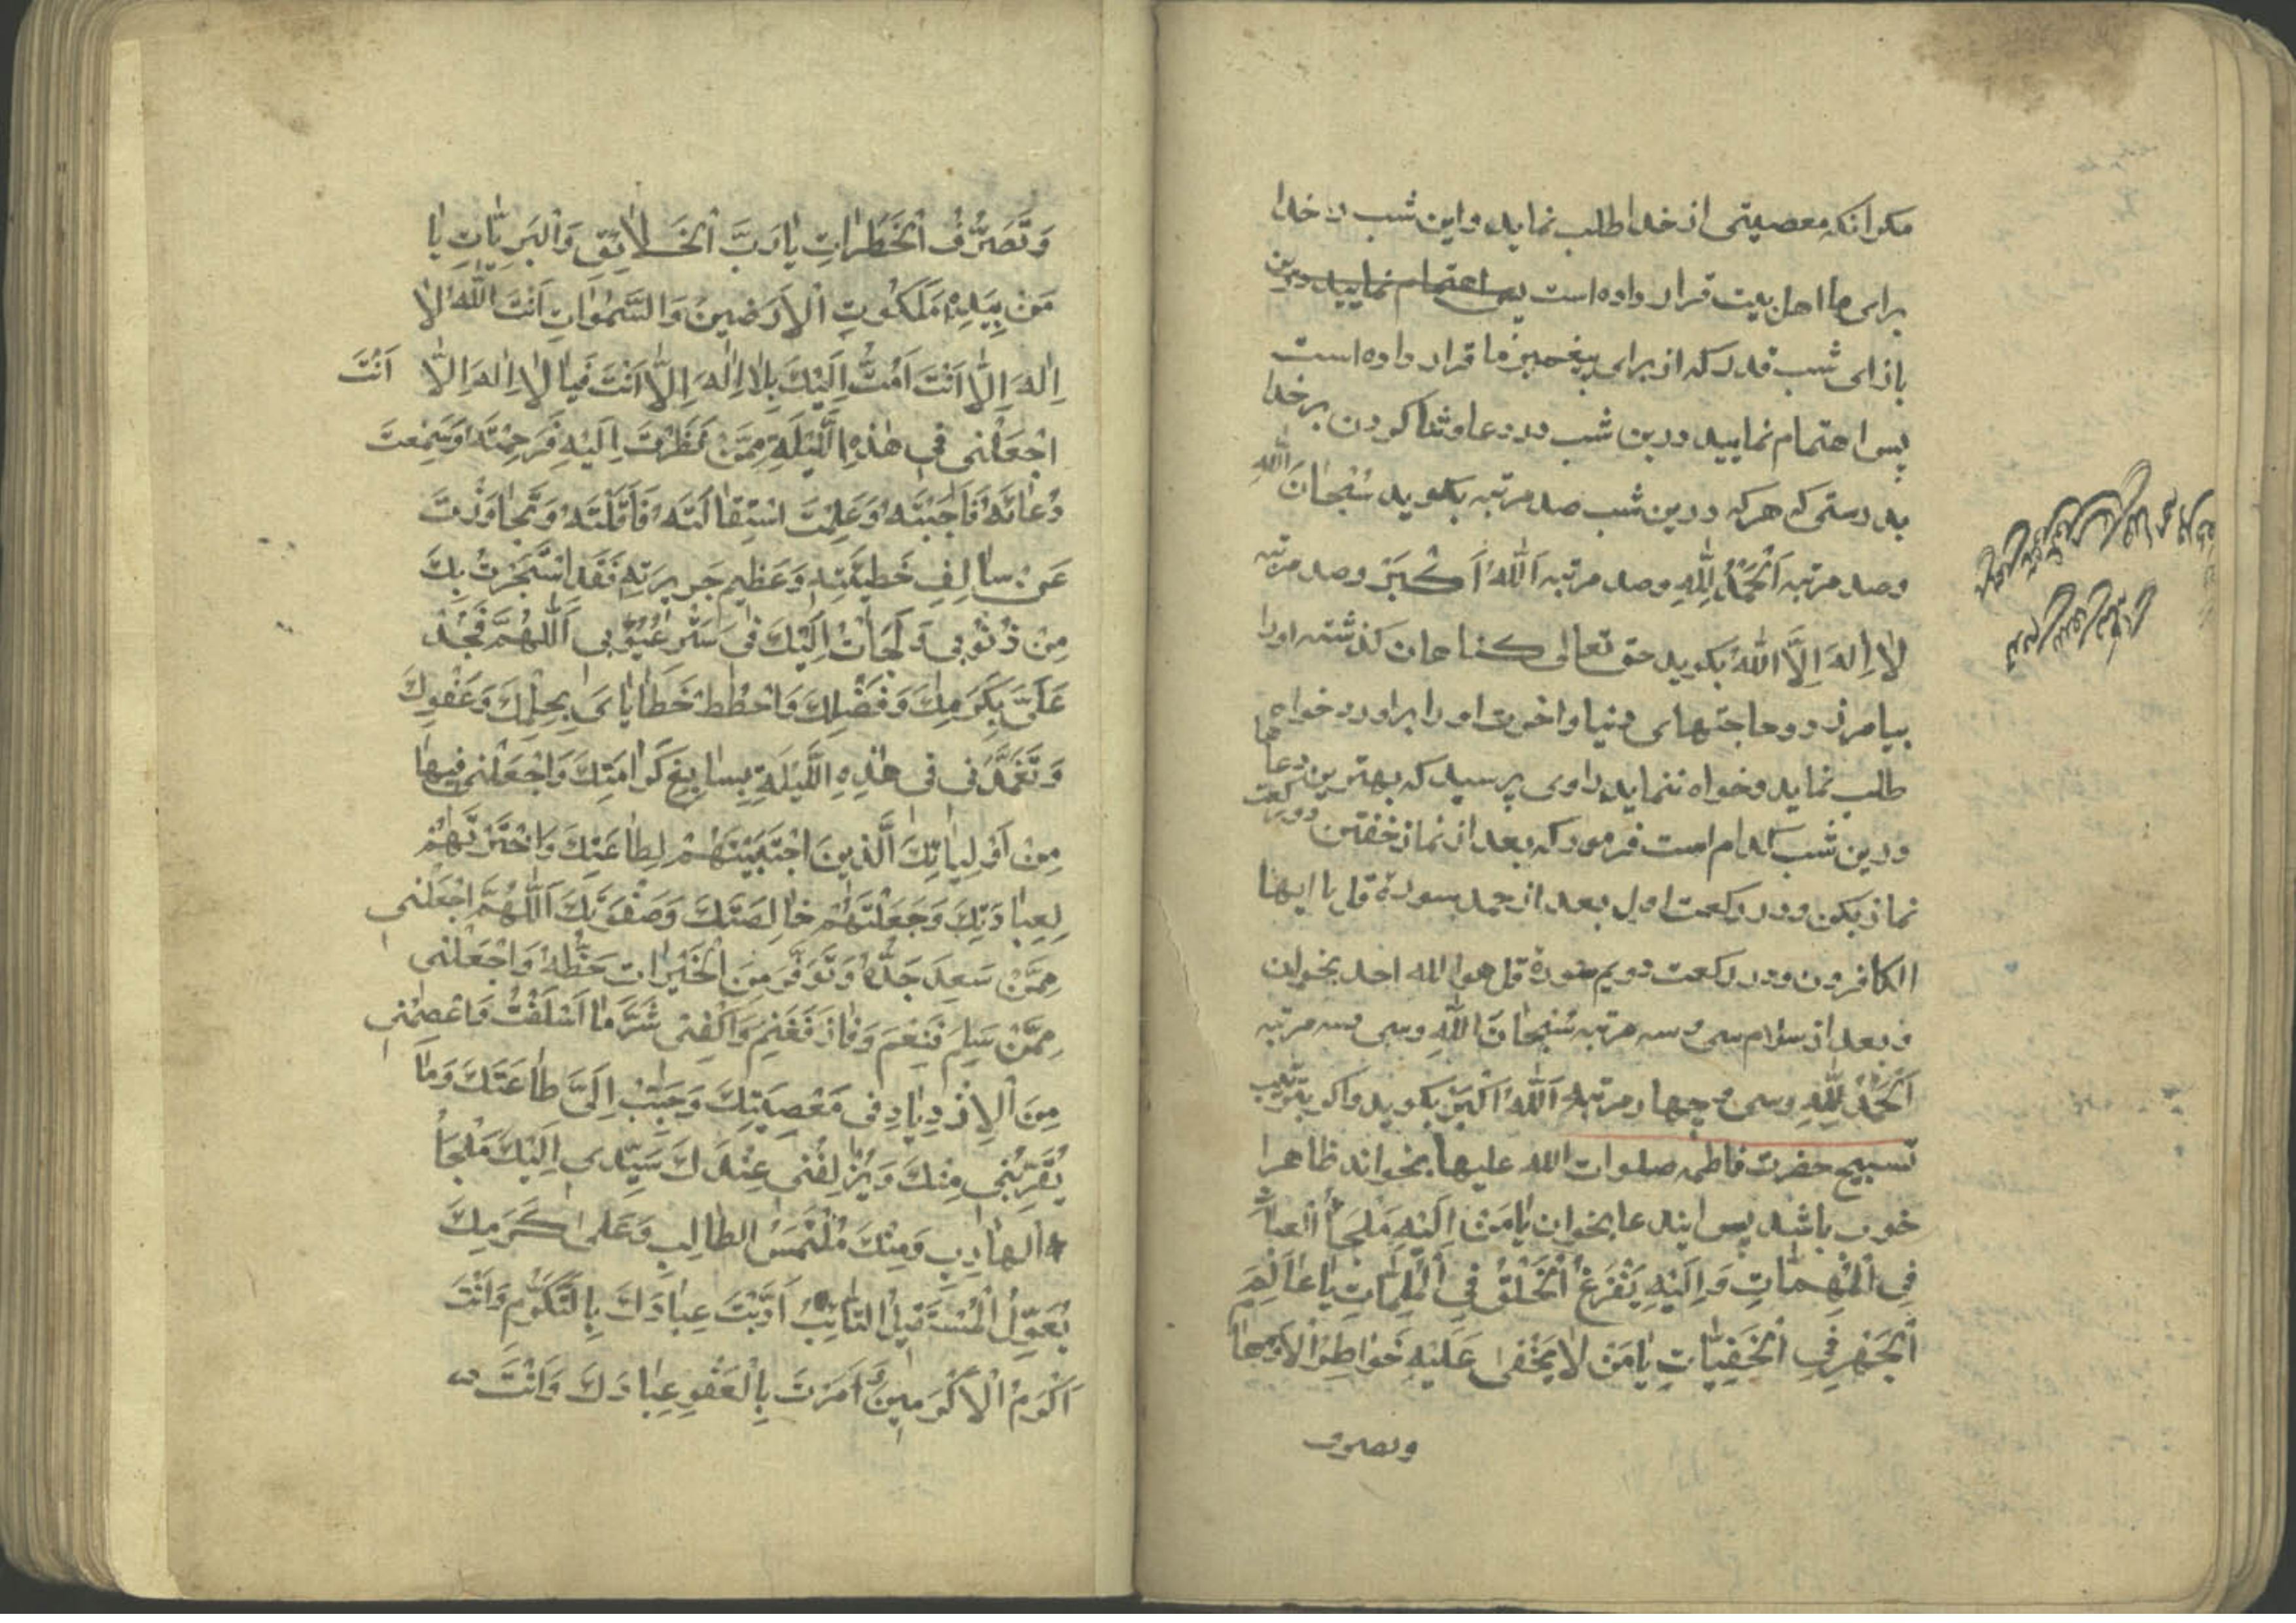 مکر انکه معصیتی از خدا طلب نماید و این شب را خدا
برای ما اهل بیت قرار داده است پس اهتمام نمایید درین
بازای شب قدر که از برای پیغمبر ما قرار داده است
پس اهتمام نمایید درین شب در دعا و ثنا کردن بر خدا
بدرستی که هر که درین شب صد مرتبه بکوید سُبْحٰانَ اللّٰهِ
وصد مرتبه اَلْحَمْدُ لِلّٰهِ وصد مرتبه اَللّٰهُ اَکْبَرْ وصد مرتبه
لٰا اِلٰهَ اِلَّا اللّٰهُ بکوید حق تعالی کناهان کذشته او را
بیامرزد و حاجتهای دنیا و اخرت او را براورد خواه
طلب نماید و خواه ننماید راوی پرسید که بهترین دعاها
درین شب کدام است فرمود که بعد از نماز خفتن دو رکعت
نماز بکن و در رکعت اول بعد از حمد سورهٔ قل یا ایها
الکافرون و در رکعت دویم سورهٔ قل هو الله احد بخوان
و بعد از سلام سی و سه مرتبه سُبْحٰانَ اللّٰهِ وسی وسه مرتبه
اَلْحَمْدُ لِلّٰهِ وسی و چهار مرتبه اَللّٰهُ اَکْبَرْ بکوید و اکر بترتیب
تسبیح حضرت فاطمه صلوات الله علیها بخواند ظاهرا
خوب باشد پس ایندعا بخوان یٰا مَنْ اِلَیْهِ مَلْجَأُ الْعِبٰادِ
فِی الْمُهِمّٰاتِ وَاِلَیْهِ یَفْزَعُ الْخَلْقُ فِی الْمُلِمّٰاتِ یٰا عٰالِمَ
الْجَهْرِ فِی الْخَفِیّٰاتِ یٰا مَنْ لٰا یَخْفیٰ عَلَیْهِ خَوٰاطِرُ الْاَوْهٰامِ
وتصرف
وَتَصَرُّفُ الْخَطَرٰاتِ یٰا رَبَّ الْخَلٰایِقِ وَالْبَرِیّٰاتِ یٰا
مَنْ بِیَدِهِ مَلَکُوتِ الْاَرَضینَ وَالسَّمٰوٰاتِ اَنْتَ اللّٰهُ لٰا
اِلٰهَ اِلّٰا اَنْتَ اَمُتُّ اِلَیْكَ بِلٰا اِلٰهَ اِلّٰا اَنْتَ فَیٰا لٰا اِلٰهَ اِلّٰا اَنْتَ
اجْعَلْنی فی هٰذِهِ اللَّیْلَةِ مِمَّنْ نَظَرْتَ اِلَیْهِ فَرَحِمْتَهُ وَسَمِعْتَ
دُعٰائَهُ فَاَجَبْتَهُ وَعَلِمْتَ اسْتِقٰالَتَهُ فَاَقَلْتَهُ وَتَجٰاوَزْتَ
عَنْ سٰالِفِ خَطیئَتِهِ وَعَظیمِ جَریرَتِهِ فَقَدِ اسْتَجَرْتُ بِكَ
مِنْ ذُنُوبی وَلَجَأْتُ اِلَیْكَ فی سَتْرِ عُیُوبی اَللّٰهُمَّ فَجُدْ
عَلَیَّ بِکَرَمِكَ وَفَضْلِكَ وَاحْطُطْ خَطٰایٰایَ بِحِلْمِكَ وَعَفْوِكَ
وَتَغَمَّدْنی فی هٰذِهِ اللَّیْلَةِ بِسٰابِغِ کَرٰامَتِكَ وَاجْعَلْنی فیهٰا
مِنْ اَوْلِیٰائِكَ الَّذینَ اجْتَبَیْتَهُمْ لِطٰاعَتِكَ وَاخْتَرْتَهُمْ
لِعِبٰادَتِكَ وَجَعَلْتَهُمْ خٰالِصَتَكَ وَصَفْوَتَكَ اَللّٰهُمَّ اجْعَلْنی
مِمَّنْ سَعِدَ جَدُّهُ وَتَوَفَّرَ مِنَ الْخَیْرٰاتِ حَظُّهُ وَاجْعَلْنی
مِمَّنْ سَلِمَ فَنَعِمَ وَفٰازَ فَغَنِمَ وَاکْفِنی شَرَّ مٰا اَسْلَفْتُ وَاعْصِمْنی
مِنَ الْاِزْدِیٰادِ فی مَعْصِیَتِكَ وَحَبِّبْ اِلَیَّ طٰاعَتَكَ وَمٰا
یُقَرِّبُنی مِنْكَ وَیُزْلِفُنی عِنْدَكَ سَیِّدی اِلَیْكَ مَلْجَأُ
الهٰارِبِ وَمِنْكَ مُلْتَمَسُ الطٰالِبِ وَعَلیٰ کَرَمِكَ
یُعَوِّلُ الْمُسْتَقیلُ التٰائِبُ اَدَّبْتَ عِبٰادَكَ بِالتَّکَرُّمِ وَاَنْتَ
اَکْرَمُ الْاَکْرَمینَ وَاَمَرْتَ بِالْعَفْوِ عِبٰادَكَ وَاَنْتَ